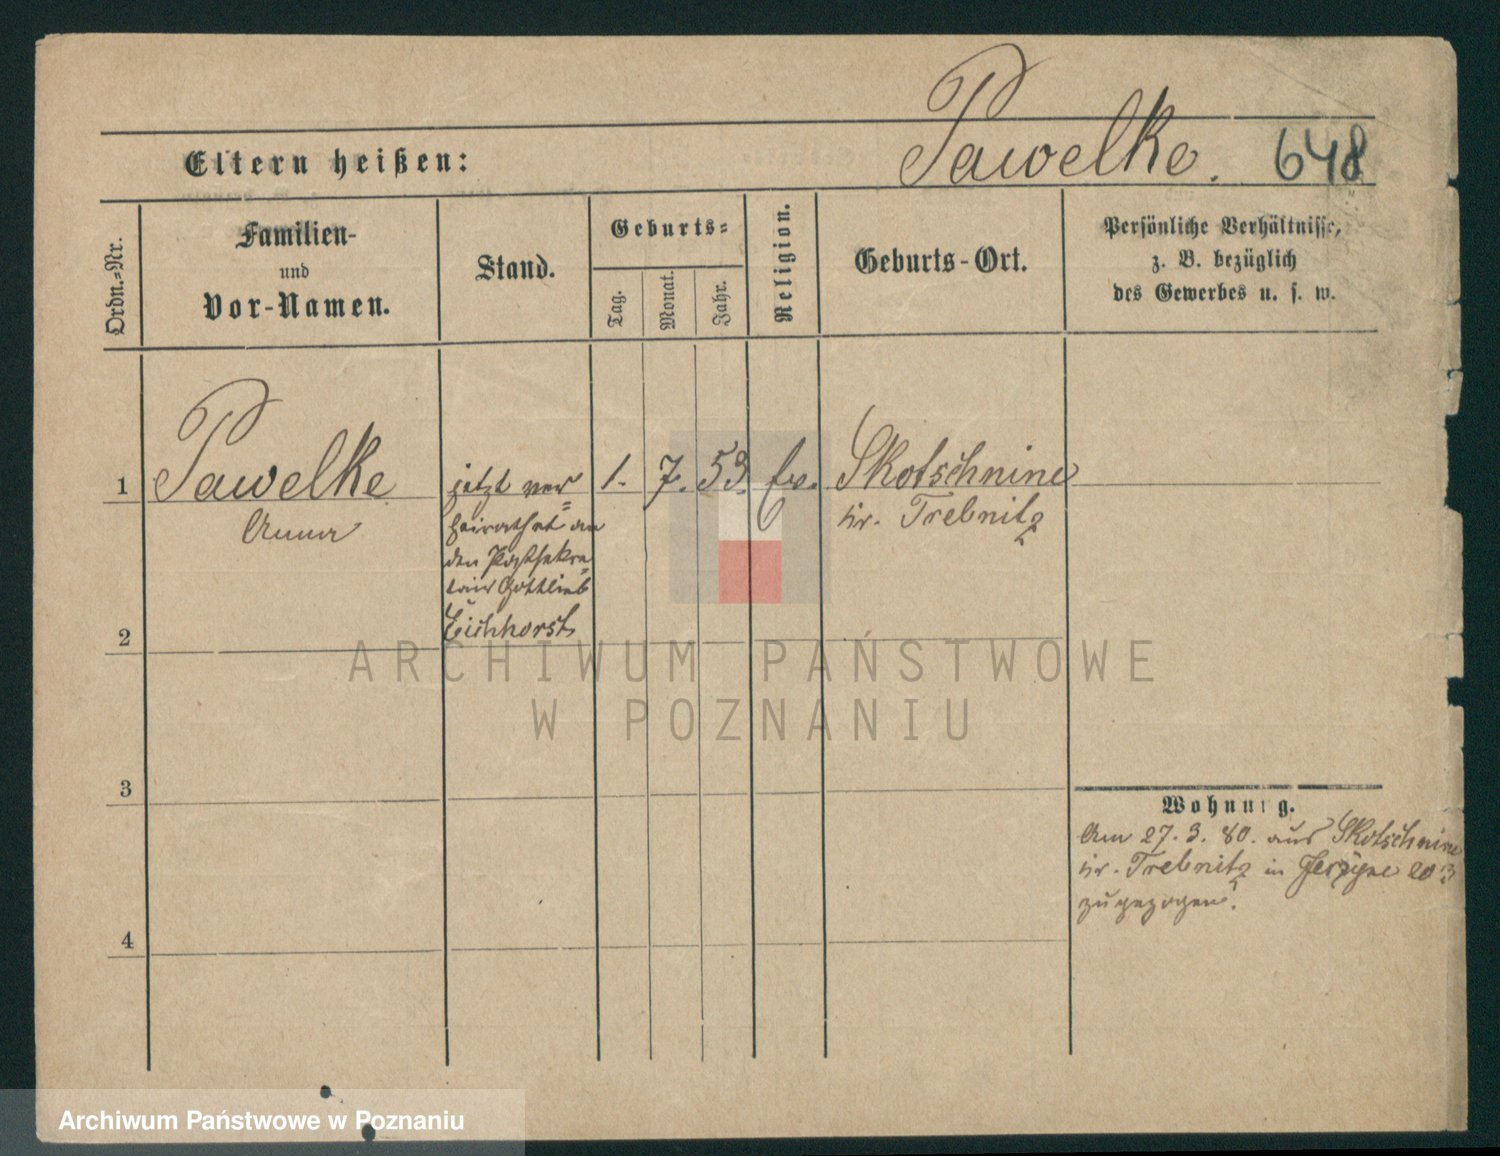 Pawelke. 648
Eltern heißen:
Ordn.=Nr.
Familien-
und
Vor-Namen.
Stand.
Geburts=
Tag.
Monat.
Jahr.
Religion.
Geburts-Ort.
Persönliche Verhältnisse,
z. B. bezüglich
des Gewerbes u. s. w.
1 Pawelke jetzt ver= 1. 7. 53. ev. Skotschnine
Anna heirathet an Kr. Trebnitz
den Postsekre=
tair Gottlieb
Eichhorst
2
3
Wohnung.
Am 27. 3. 80. aus Skotschnine
Kr. Trebnitz in Jerzyce 203
zugezogen.
4
ARCHIWUM PAŃSTWOWE
W POZNANIU
Archiwum Państwowe w Poznaniu